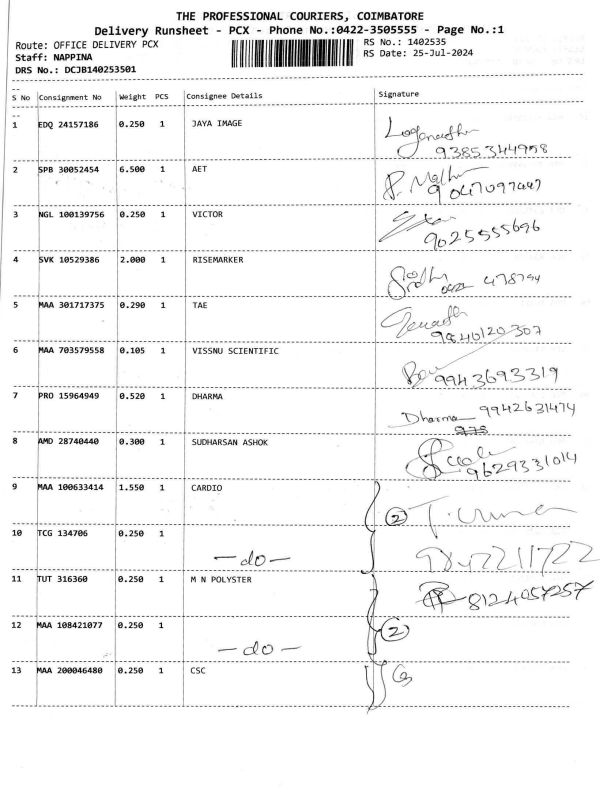 THE PROFESSIONAL COURIERS, COIMBATORE
Delivery Runsheet - PCX - Phone No.:0422-3505555 - Page No.:1
Route: OFFICE DELIVERY PCX
RS No.: 1402535
Staff: NAPPINA
RS Date: 25-Jul-2024
DRS No.: DCJB140253501
S No Consignment No Weight PCS Consignee Details Signature
1 EDQ 24157186 0.250 1 JAYA IMAGE
9385344958
2 SPB 30052454 6.500 1 AET
9047097447
3 NGL 100139756 0.250 1 VICTOR
9025555696
4 SVK 10529386 2.000 1 RISEMARKER
478794
5 MAA 301717375 0.290 1 TAE
9840120307
6 MAA 703579558 0.105 1 VISSNU SCIENTIFIC
9943693319
7 PRO 15964949 0.520 1 DHARMA
Dharma 9942631474
8 AMD 28740440 0.300 1 SUDHARSAN ASHOK
9629331014
9 MAA 100633414 1.550 1 CARDIO
2
10 TCG 134706 0.250 1
-do-
11 TUT 316360 0.250 1 M N POLYSTER
8124057257
12 MAA 108421077 0.250 1
2
-do-
13 MAA 200046480 0.250 1 CSC